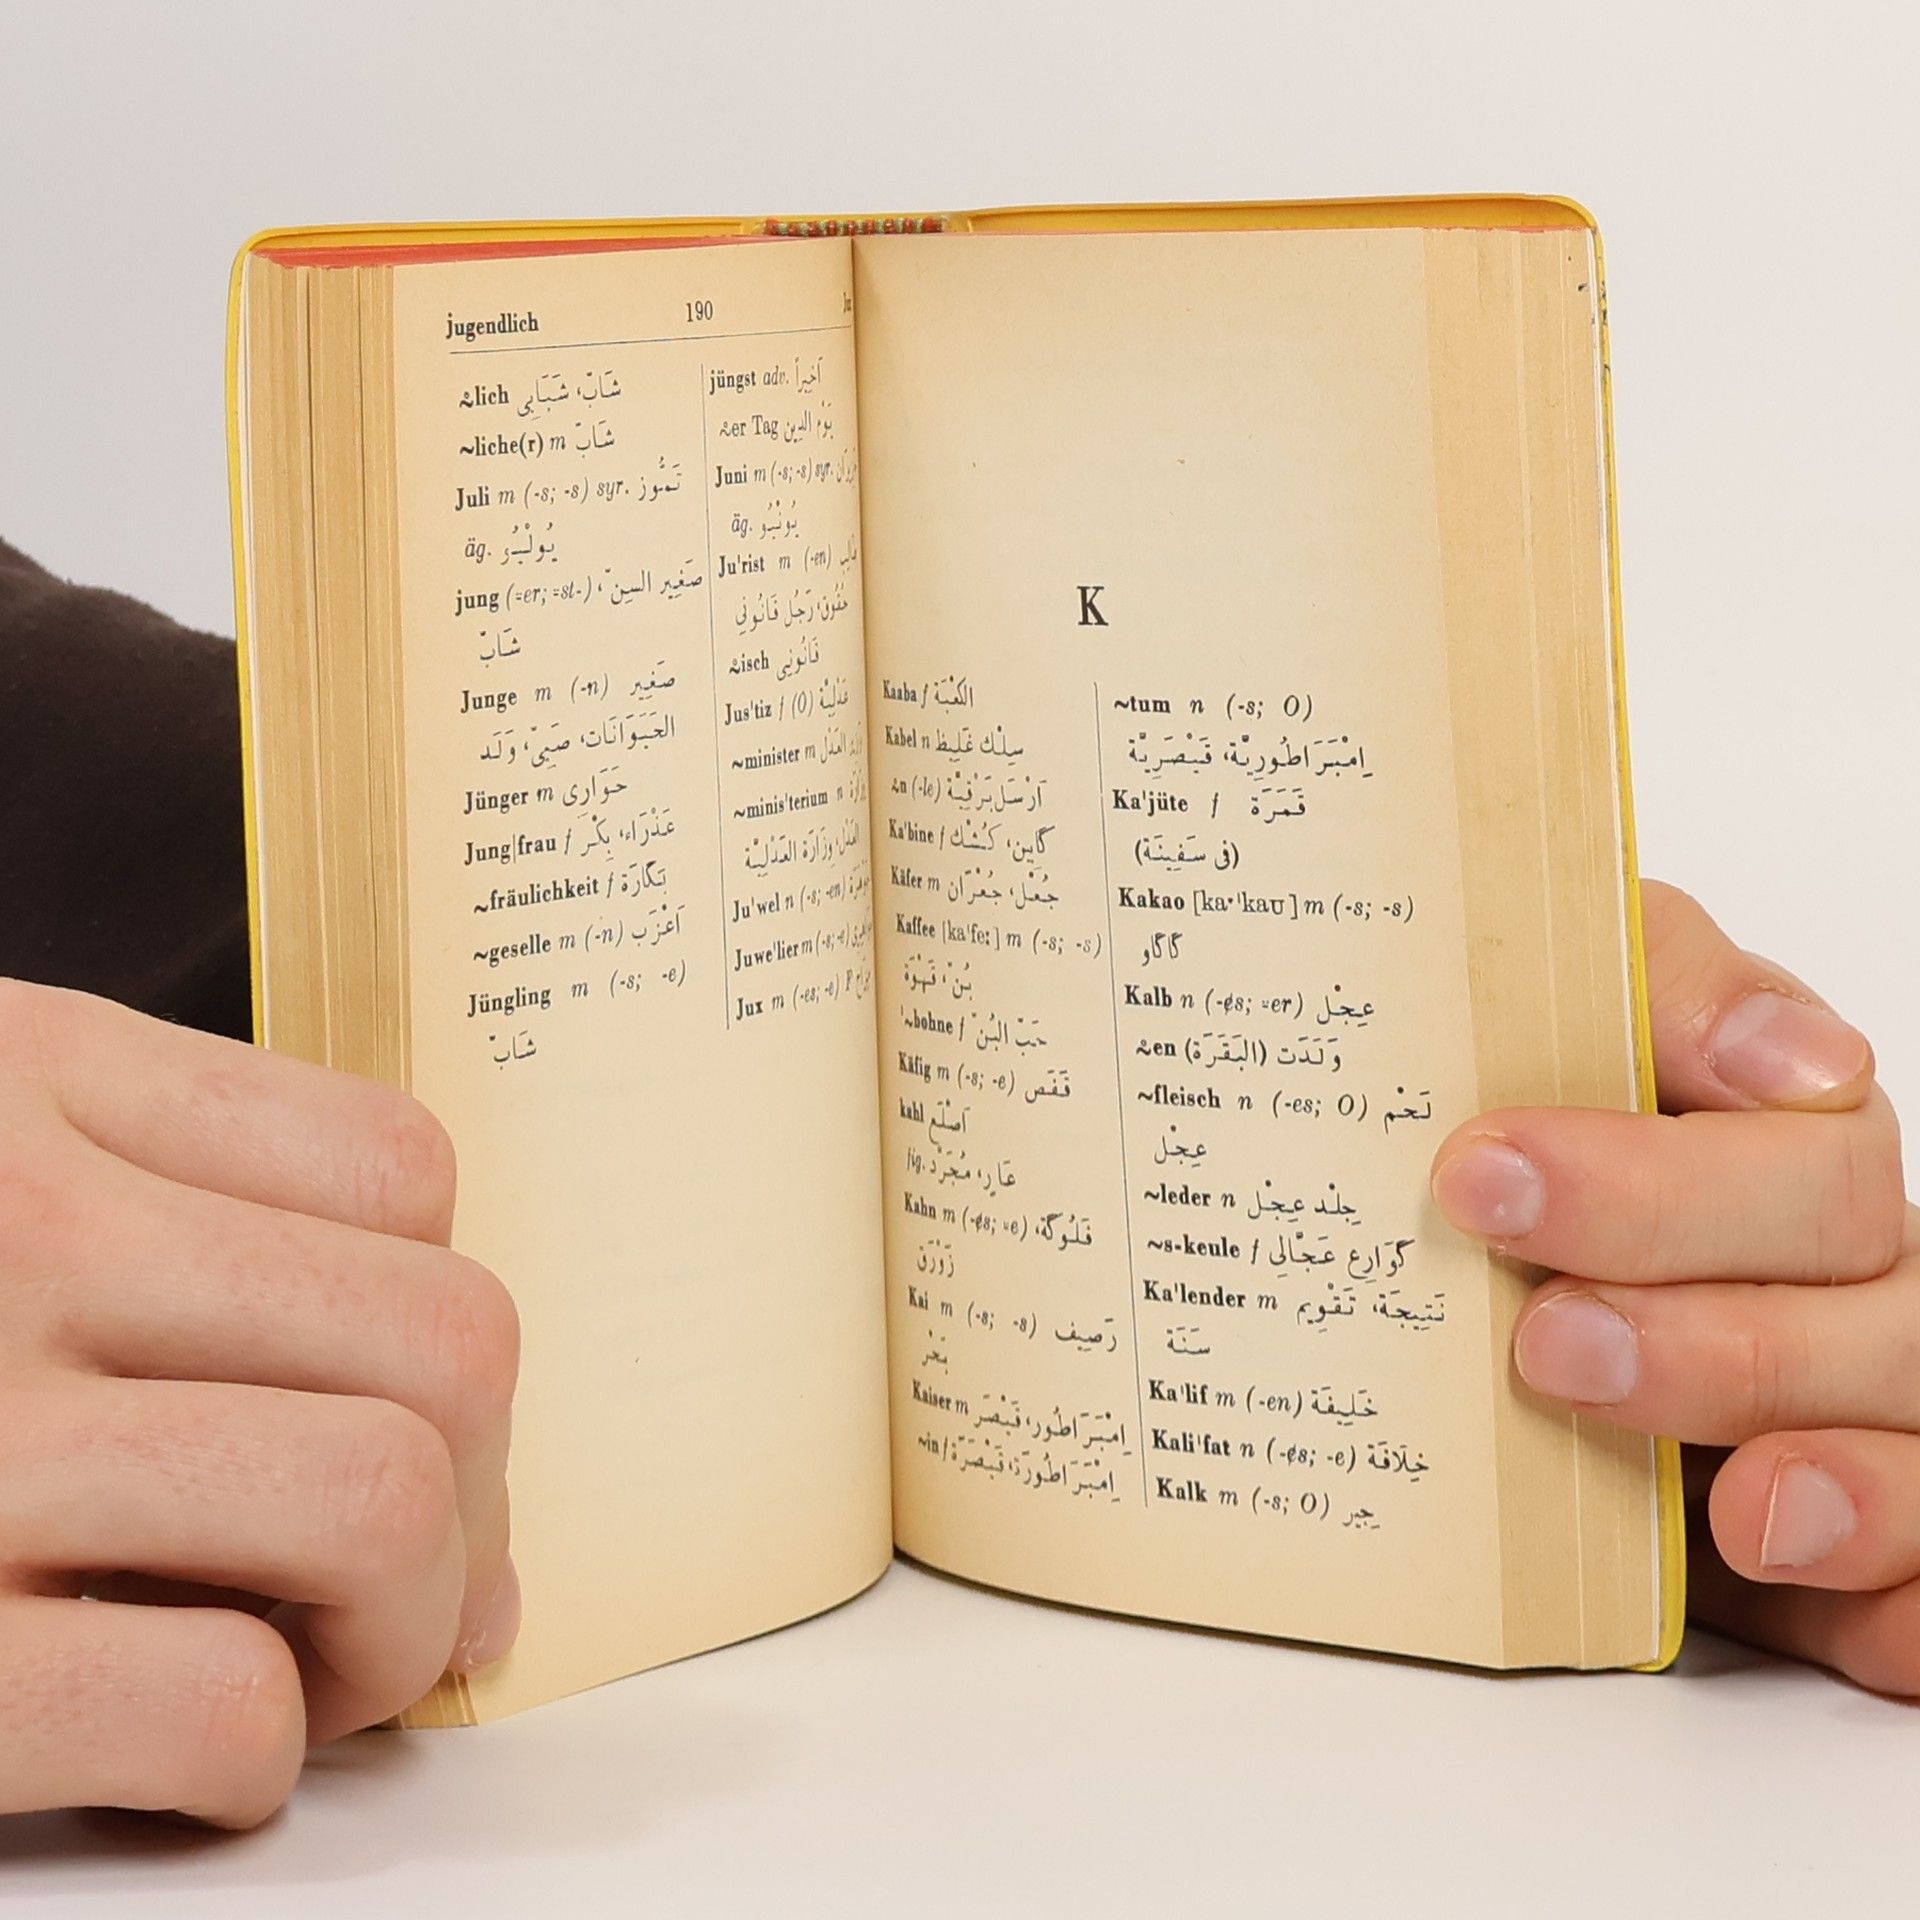 jugendlich 190
~lich شَابّ، شَبَابِى
~liche(r) m شَابّ
Juli m (-s; -s) syr. تَمُّوز
äg. يُولْيُو
jung (=er; =st-) صَغِير السِنّ،
شَابّ
Junge m (-n) صَغِير
الحَيَوَانَات، صَبِىّ، وَلَد
Jünger m حَوَارِى
Jung|frau f عَذْرَاء، بِكْر
~fräulichkeit f بَكَارَة
~geselle m (-n) أَعْزَب
Jüngling m (-s; -e)
شَابّ
jüngst adv. أَخِيراً
~er Tag يَوْم الدِين
Juni m (-s; -s) syr.
äg. يُونْيُو
Ju'rist m (-en)
حُقُوق، رَجُل قَانُونِى
~isch قَانُونِى
Jus'tiz f (O) عَدْلِيَّة
~minister m العَدْل
~minis'terium n
العَدْل، وِزَارَة العَدْلِيَّة
Ju'wel n (-s; -en)
Juwe'lier m (-s; -e)
Jux m (-es; -e) F
K
Kaaba f الكَعْبَة
Kabel n سِلْك غَلِيظ
~n (-le) أَرْسَل بَرْقِيَّة
Ka'bine f كَابِين، كُشْك
Käfer m جُعْل، جُعْرَان
Kaffee [ka'feː] m (-s; -s)
بُنّ، قَهْوَة
'~bohne f حَبّ البُنّ
Käfig m (-s; -e) قَفَص
kahl أَصْلَع
fig. عَارٍ، مُجَرَّد
Kahn m (-es; =e) فَلُوكَة،
زَوْرَق
Kai m (-s; -s) رَصِيف
بَحْر
Kaiser m إِمْبَرَاطُور، قَيْصَر
~in f إِمْبَرَاطُورَة، قَيْصَرَة
~tum n (-s; O)
إِمْبَرَاطُورِيَّة، قَيْصَرِيَّة
Ka'jüte f قَمَرَة
(فى سَفِينَة)
Kakao [ka·'kaʊ] m (-s; -s)
كَاكَاو
Kalb n (-es; =er) عِجْل
~en وَلَدَت (البَقَرَة)
~fleisch n (-es; O) لَحْم
عِجْل
~leder n جِلْد عِجْل
~s-keule f كَوَارِع عَجَّالِى
Ka'lender m نَتِيجَة، تَقْوِيم
سَنَة
Ka'lif m (-en) خَلِيفَة
Kali'fat n (-es; -e) خِلَافَة
Kalk m (-s; O) جِير